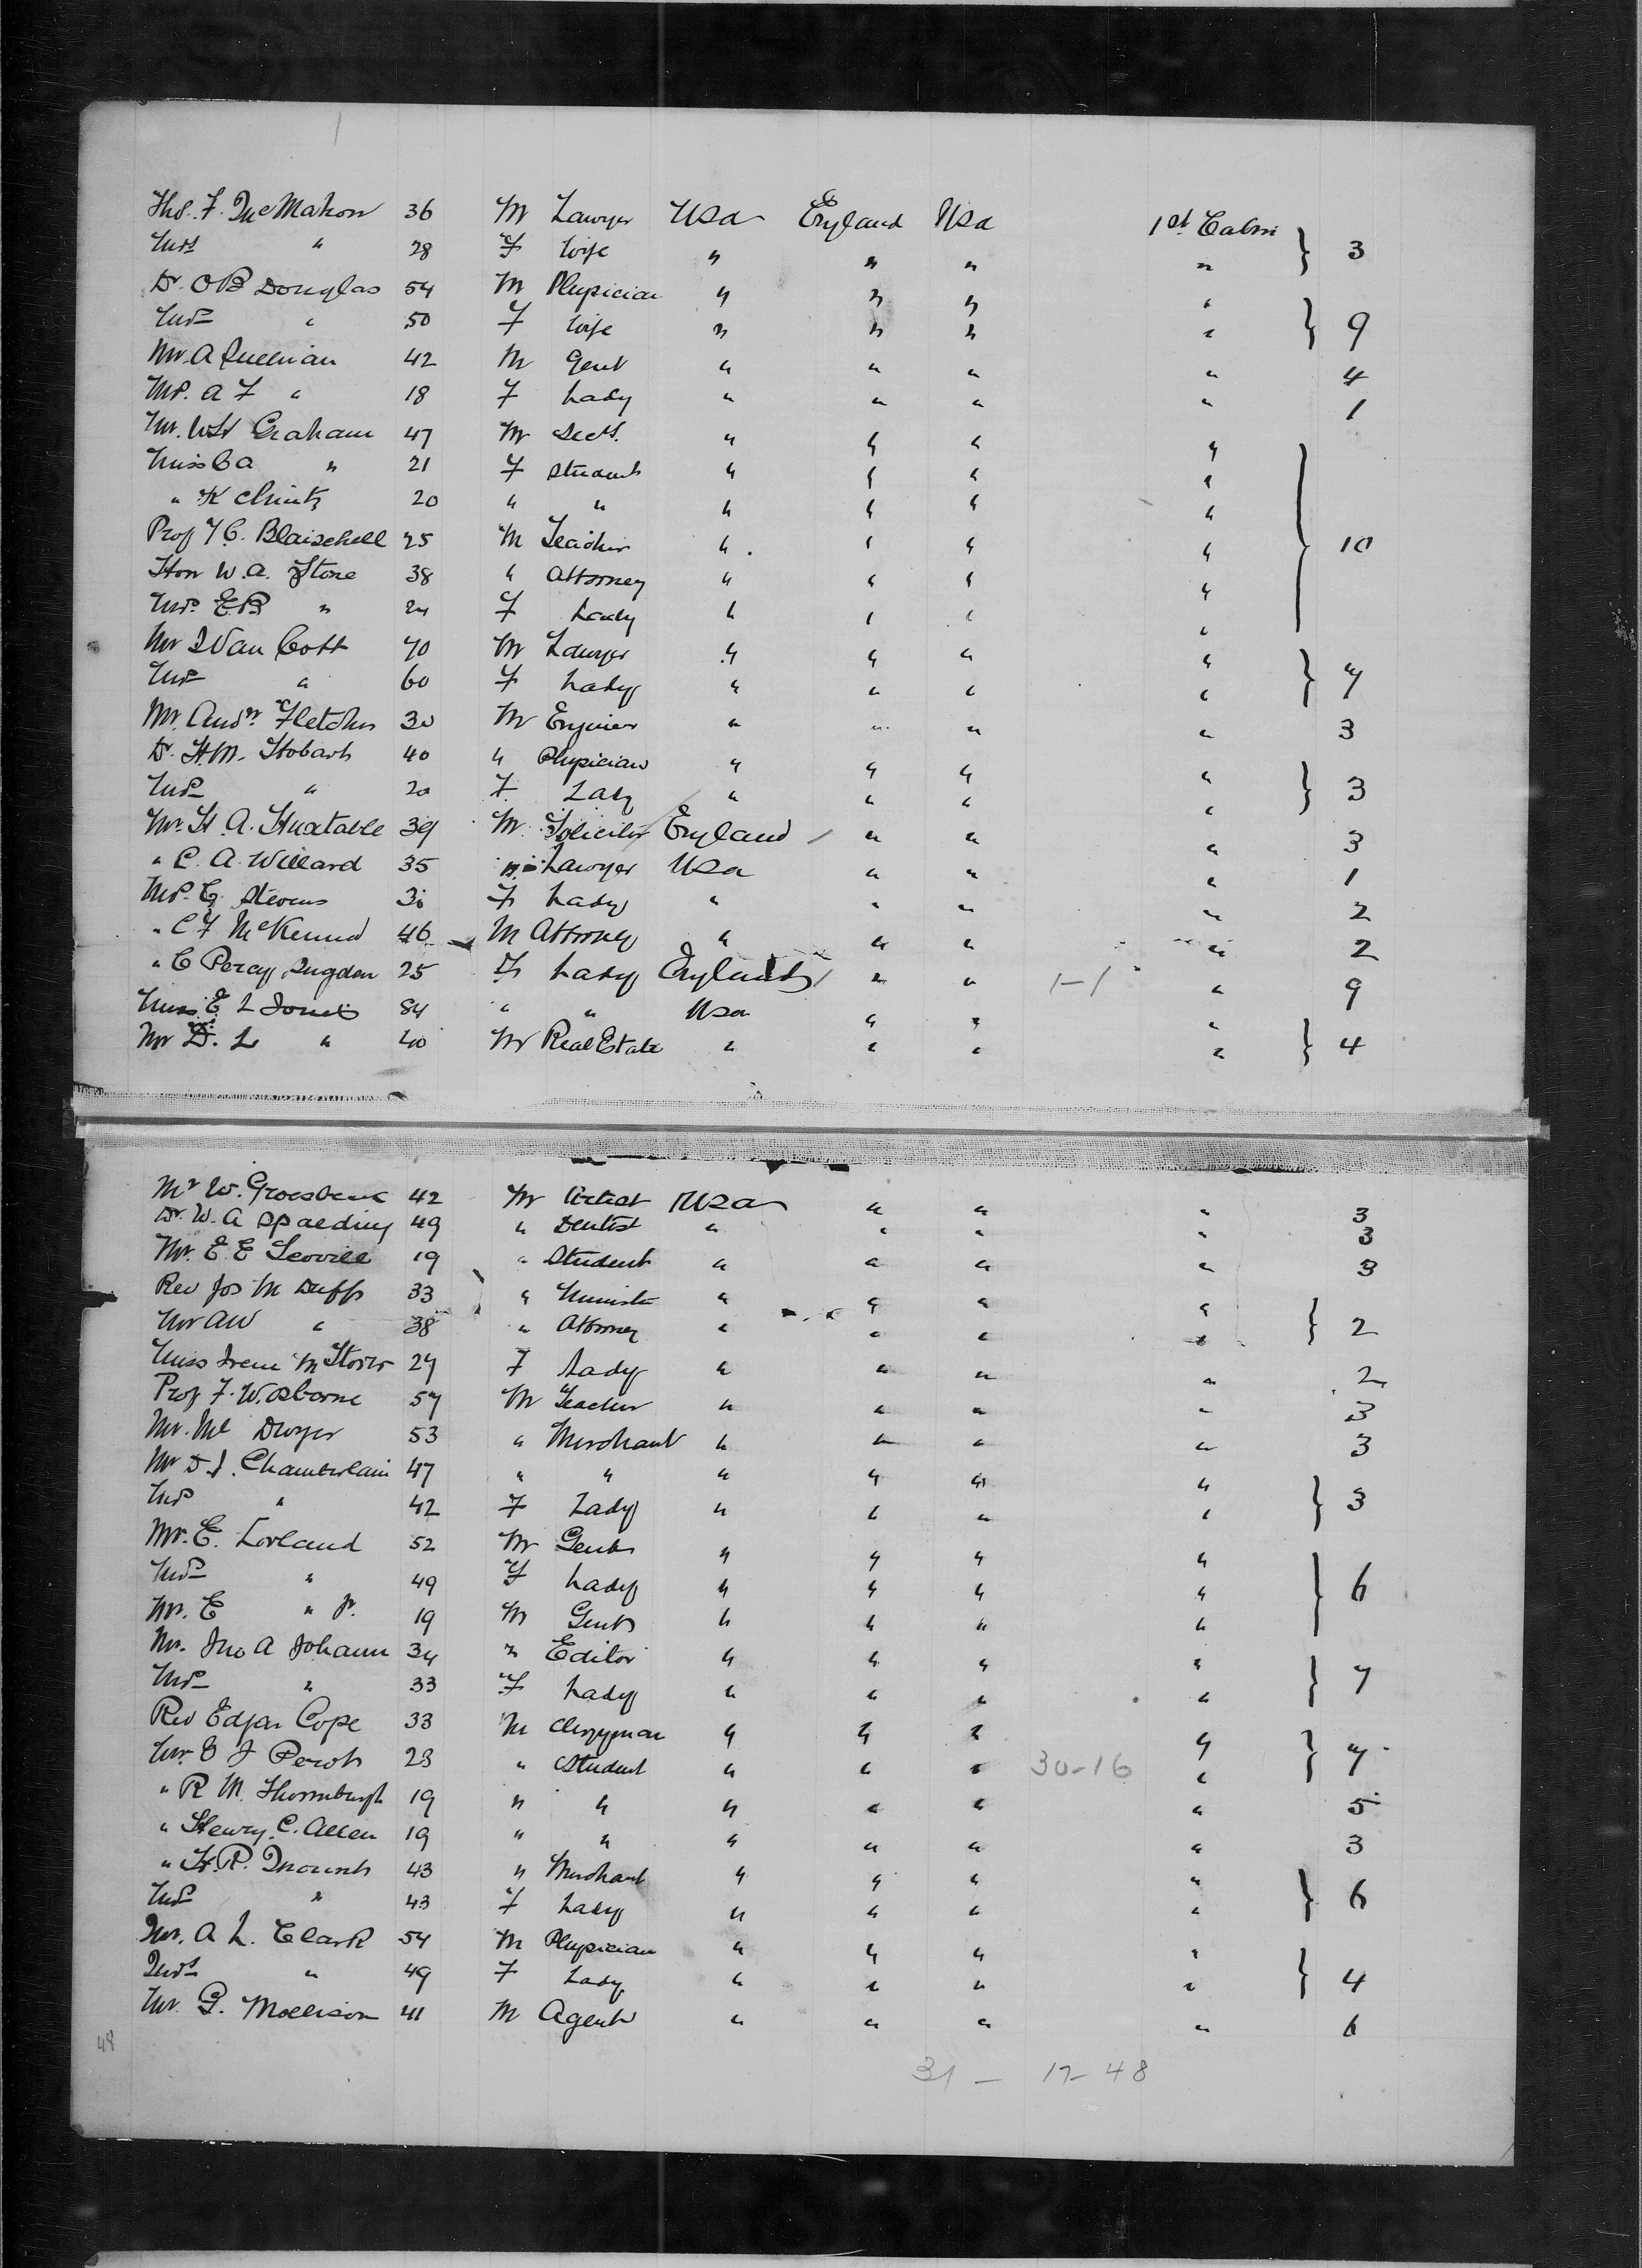 Thos. F. McMahon 36 M Lawyer USA England USA 1st Cabin
Mrs " 28 F Wife " " " " 3
Dr. OB Douglas 54 M Physician " " " "
Mrs " 50 F Wife " " " " 9
Mr. A Sullivan 42 M Gent " " " " 4
Ms. A F " 18 F Lady " " " " 1
Mr. WH Graham 47 M " " " "
Miss Ca " 21 F Student " " " "
" K 20 " " " " " "
Prof T.C. Blaisdell 25 M Teacher " " " " 10
Hon W. A. Stone 38 " Attorney " " " "
Mrs. E.B " 24 F Lady " " " "
Mr J Van Cott 70 M Lawyer " " " "
Mrs " 60 F Lady " " " " 7
Mr. Andw Fletcher 30 M Engineer " " " " 3
Dr. H.M. Hobart 40 " Physician " " " "
Mrs " 20 F Lady " " " " 3
Mr. H. A. Huxtable 39 M Solicitor England " " " 3
" C. A. Willard 35 " Lawyer USA " " " 1
Ms. G. Stevens 30 F Lady " " " " 2
" C F McKenna 46 M Attorney " " " " 2
" C Percy Sugden 25 F Lady England " " 1-1 " 9
Miss E L Jones 84 " " USA " " "
Mr D. L " 40 M Real Estate " " " " 4
Mr W. Groesbeck 42 M Artist USA " " " 3
Dr. W. A Spaulding 49 " Dentist " " " " 3
Mr. E. E Scovill 19 " Student " " " " 3
Rev Jos M Duff 33 " Minister " " " "
Mr AW " 38 " Attorney " " " " 2
Miss Irene M Storer 27 F Lady " " " " 2
Prof F. W. Osborne 57 M Teacher " " " " 3
Mr. Ml Dwyer 53 " Merchant " " " " 3
Mr D. J. Chamberlain 47 " " " " " "
Mrs " 42 F Lady " " " " 3
Mr. E. Lorland 52 M Gent " " " "
Mrs " 49 F Lady " " " " 6
Mr. E " Jr. 19 M Gent " " " "
Mr. Jno A Johann 34 " Editor " " " "
Mrs " 33 F Lady " " " " 7
Rev Edgar Cope 33 M Clergyman " " " "
Mr. E J Perot 23 " Student " " " 30-16 " 7
" R M. Thornburgh 19 " " " " " " 5
" Henry. C. Allen 19 " " " " " " 3
" H. R. Mount 43 " Merchant " " " "
Mrs " 43 F Lady " " " " 6
Mr. A L. Clark 54 M Physician " " " "
Mrs " 49 F Lady " " " " 4
Mr. G. Mollison 41 M Agent " " " " 6
48
31 - 17 - 48